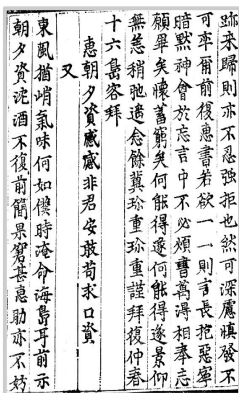 跡來歸則亦不忍強拒也然可深慮愼發不
可率爾前復惠書若欲一一則言長抱惡寧
暗黙神會於忘言中不必煩書萬得相奉忘
願畢矣懷蓄窮矣何能得逡何能得遂景仰
無怠稍吔遠念餘冀珎重珎重謹拜復仲春
十六島容拜
惠朝夕資感感非君安敢苟求口資
又
東風猶峭氣味何如僕時淹命海島耳前示
朝夕資沱酒不復前簡果窘甚惠助亦不妨